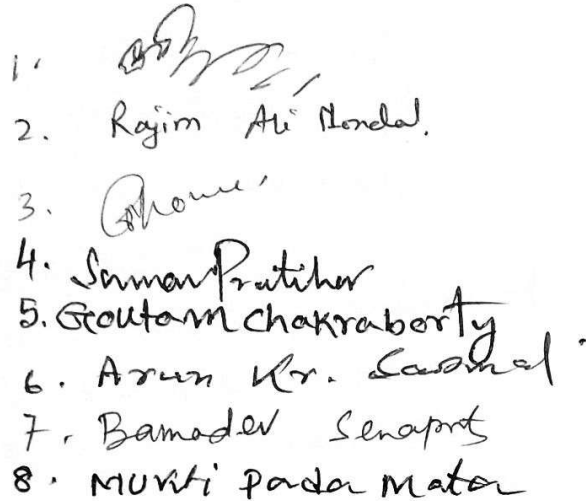 1.
2. Rajim Ali Mondal.
3.
4. Suman Pratihar
5. Goutam Chakraborty
6. Arun Kr. Sasmal
7. Bamadev Senapati
8. Mukti Pada Mata